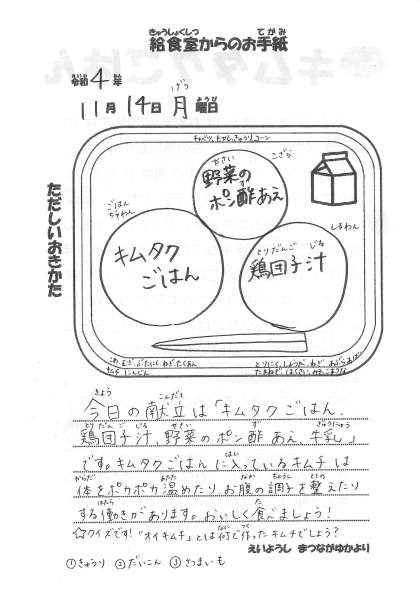 給食室からのお手紙
令和4年
11月14日月曜日
キャベツ、もやし、きゅうり、コーン
ただしいおきかた
野菜のポン酢あえ
こざら
ごはんちゃわん
キムタクごはん
しるわん
鶏団子汁
こめ、むぎ、ぶたにく、ねぎ、たくあん
キムチ、にんじん
とりにく、しょうが、ねぎ、
たまねぎ、はくさい、みそ、こまつな
今日の献立は「キムタクごはん、
鶏団子汁、野菜のポン酢あえ、牛乳」
です。キムタクごはんに入っているキムチは
体をポカポカ温めたり、お腹の調子を整えたり
する働きがあります。おいしく食べましょう!
☆クイズです!「オイキムチ」とは何で作ったキムチでしょう?
えいようし まつながゆかより
①きゅうり ②だいこん ③さつまいも